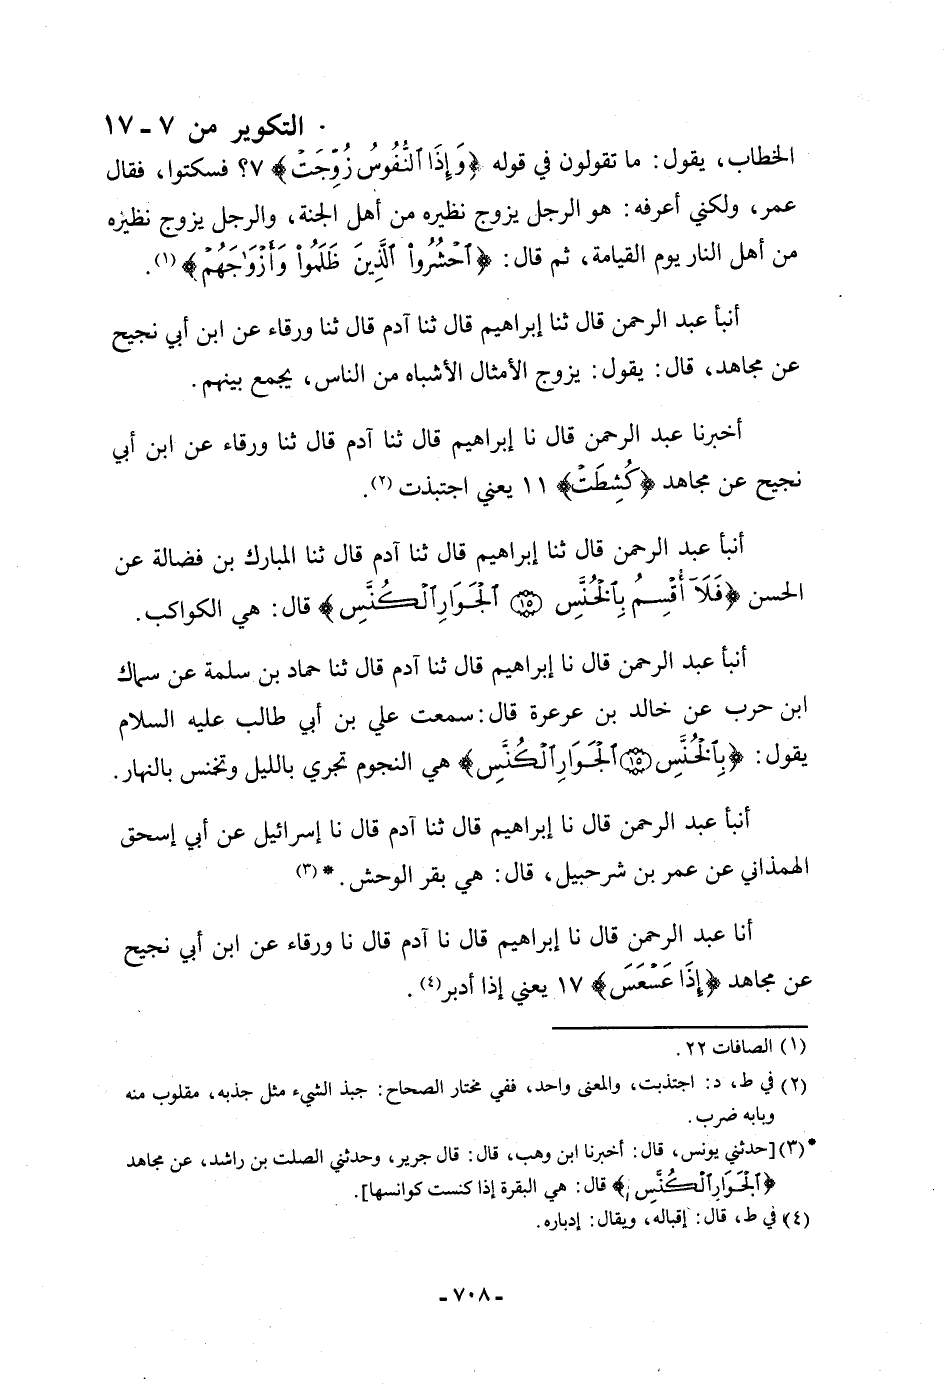 التكوير من ٧ - ١٧
الخطاب، يقول: ما تقولون في قوله ﴿وَإِذَا ٱلنُّفُوسُ زُوِّجَتْ﴾ ٧؟ فسكتوا، فقال
عمر، ولكني أعرفه: هو الرجل يزوج نظيره من أهل الجنة، والرجل يزوج نظيره
من أهل النار يوم القيامة، ثم قال: ﴿ٱحْشُرُوا۟ ٱلَّذِينَ ظَلَمُوا۟ وَأَزْوَٰجَهُمْ﴾ (١).
أنبأ عبد الرحمن قال ثنا إبراهيم قال ثنا آدم قال ثنا ورقاء عن ابن أبي نجيح
عن مجاهد، قال: يقول: يزوج الأمثال الأشباه من الناس، يجمع بينهم.
أخبرنا عبد الرحمن قال نا إبراهيم قال ثنا آدم قال ثنا ورقاء عن ابن أبي
نجيح عن مجاهد ﴿كُشِطَتْ﴾ ١١ يعني اجتبذت (٢).
أنبأ عبد الرحمن قال ثنا إبراهيم قال ثنا آدم قال ثنا المبارك بن فضالة عن
الحسن ﴿فَلَآ أُقْسِمُ بِٱلْخُنَّسِ ۝١٥ ٱلْجَوَارِ ٱلْكُنَّسِ﴾ قال: هي الكواكب.
أنبأ عبد الرحمن قال نا إبراهيم قال ثنا آدم قال ثنا حماد بن سلمة عن سماك
ابن حرب عن خالد بن عرعرة قال: سمعت علي بن أبي طالب عليه السلام
يقول: ﴿بِٱلْخُنَّسِ ۝١٥ ٱلْجَوَارِ ٱلْكُنَّسِ﴾ هي النجوم تجري بالليل وتخنس بالنهار.
أنبأ عبد الرحمن قال نا إبراهيم قال ثنا آدم قال نا إسرائيل عن أبي إسحق
الهمذاني عن عمر بن شرحبيل، قال: هي بقر الوحش. *(٣)
أنا عبد الرحمن قال نا إبراهيم قال نا آدم قال نا ورقاء عن ابن أبي نجيح
عن مجاهد ﴿إِذَا عَسْعَسَ﴾ ١٧ يعني إذا أدبر(٤).
(١) الصافات ٢٢.
(٢) في ط، د: اجتذبت، والمعنى واحد، ففي مختار الصحاح: جبذ الشيء مثل جذبه، مقلوب منه
وبابه ضرب.
*(٣)[حدثني يونس، قال: أخبرنا ابن وهب، قال: قال جرير، وحدثني الصلت بن راشد، عن مجاهد
﴿ٱلْجَوَارِ ٱلْكُنَّسِ﴾ قال: هي البقرة إذا كنست كوانسها].
(٤) في ط، قال: إقباله، ويقال: إدباره.
- ٧٠٨ -